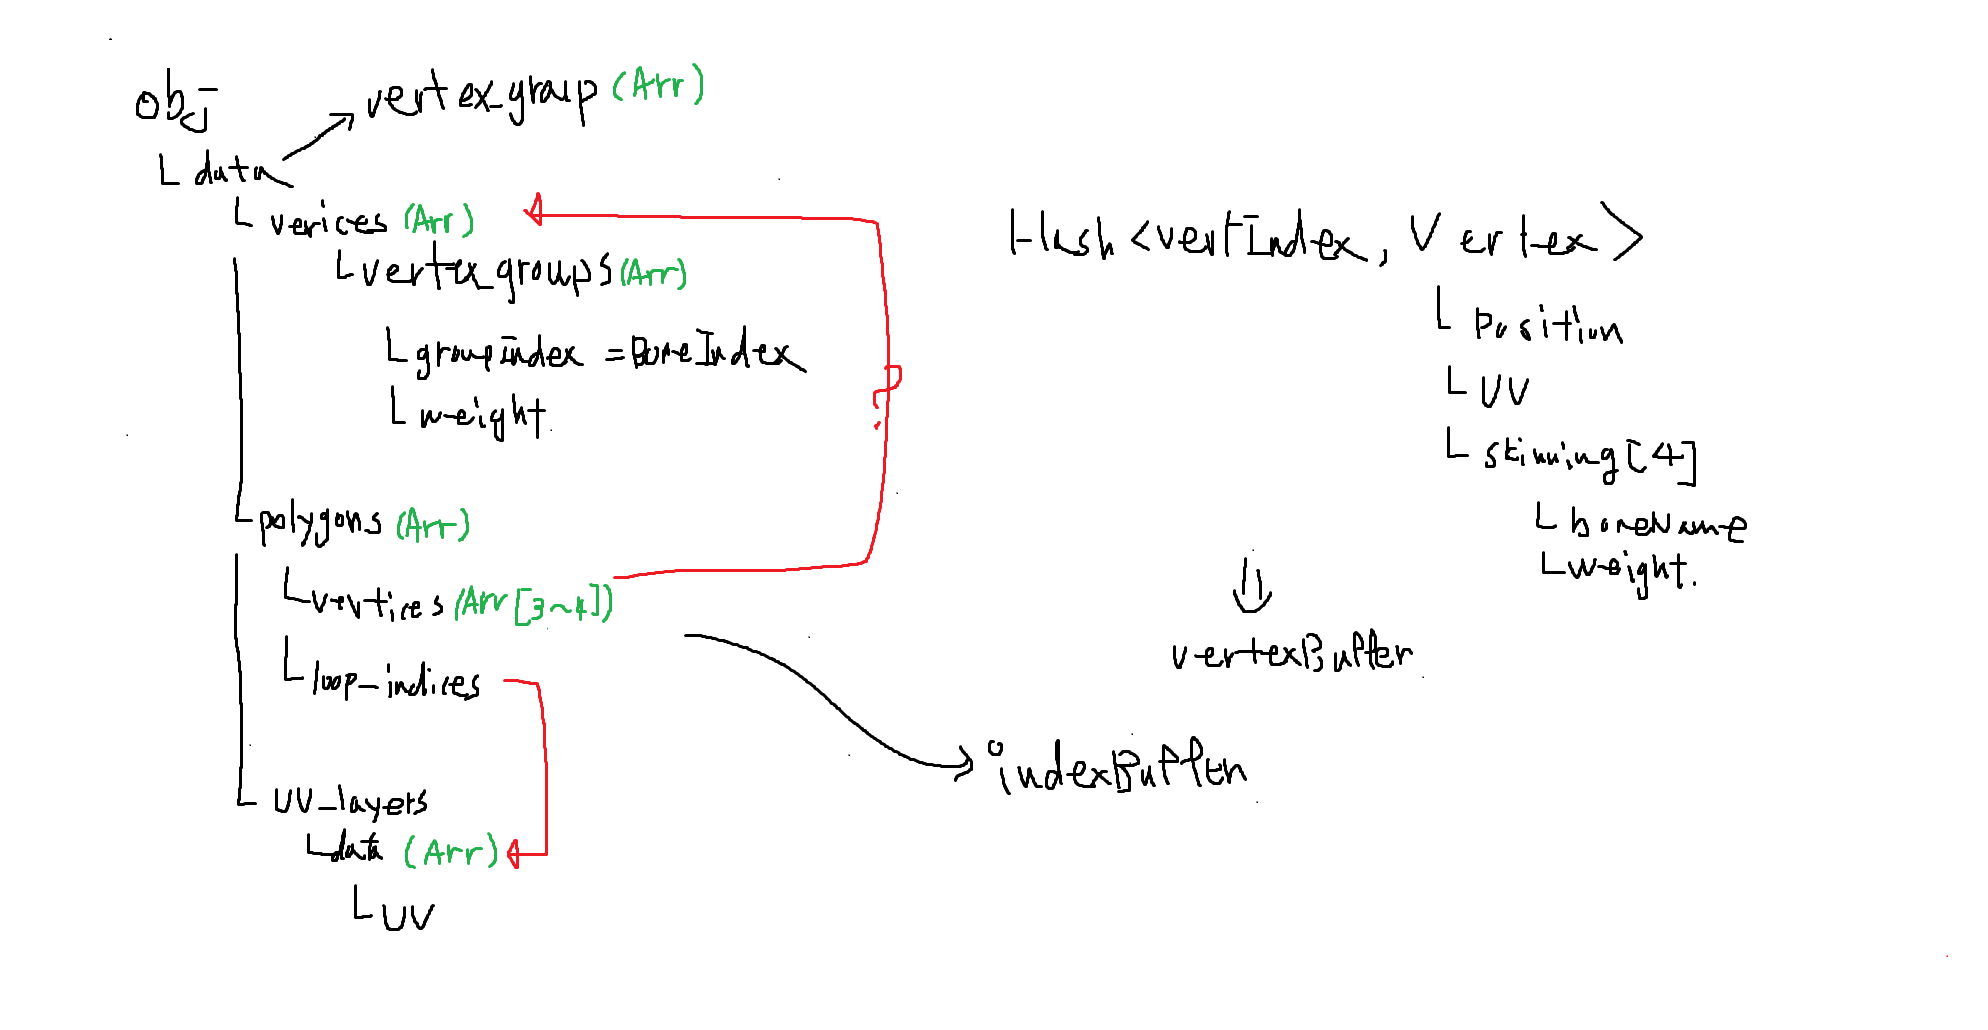 obj
vertex_group (Arr)
L data
L verices (Arr)
L vertex_groups (Arr)
L groupindex = BoneIndex
L weight
L polygons (Arr)
L vertices (Arr[3~4])
L loop_indices
L UV_layers
L data (Arr)
L UV
?
Hash <vertIndex, Vertex>
L Position
L UV
L skinning [4]
L boneName
L weight.
vertexBuffer
indexBuffer